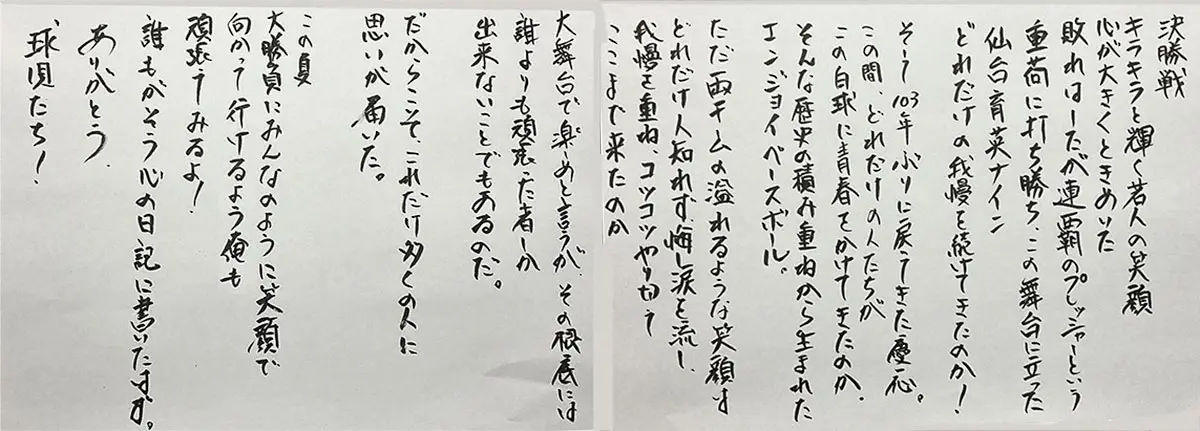 決勝戦
キラキラと輝く若人の笑顔
心が大きくときめいた
敗れはしたが連覇のプレッシャーという
重荷に打ち勝ち、この舞台に立った
仙台育英ナイン
どれだけの我慢を続けてきたのか!
そして103年ぶりに戻ってきた慶応。
この間、どれだけの人たちが
この白球に青春をかけてきたのか。
そんな歴史の積み重ねから生まれた
エンジョイベースボール。
ただ両チームの溢れるような笑顔は
どれだけ人知れず悔し涙を流し、
我慢を重ね、コツコツやり切って
ここまで来たのか
大舞台で楽しめと言うが、その根底には
誰よりも頑張った者しか
出来ないことでもあるのだ。
だからこそ、これだけ多くの人に
思いが届いた。
この夏
大勝負にみんなのように笑顔で
向かって行けるよう俺も
頑張ってみるよ!
誰もがそう心の日記に書いたはず。
ありがとう、
球児たち!